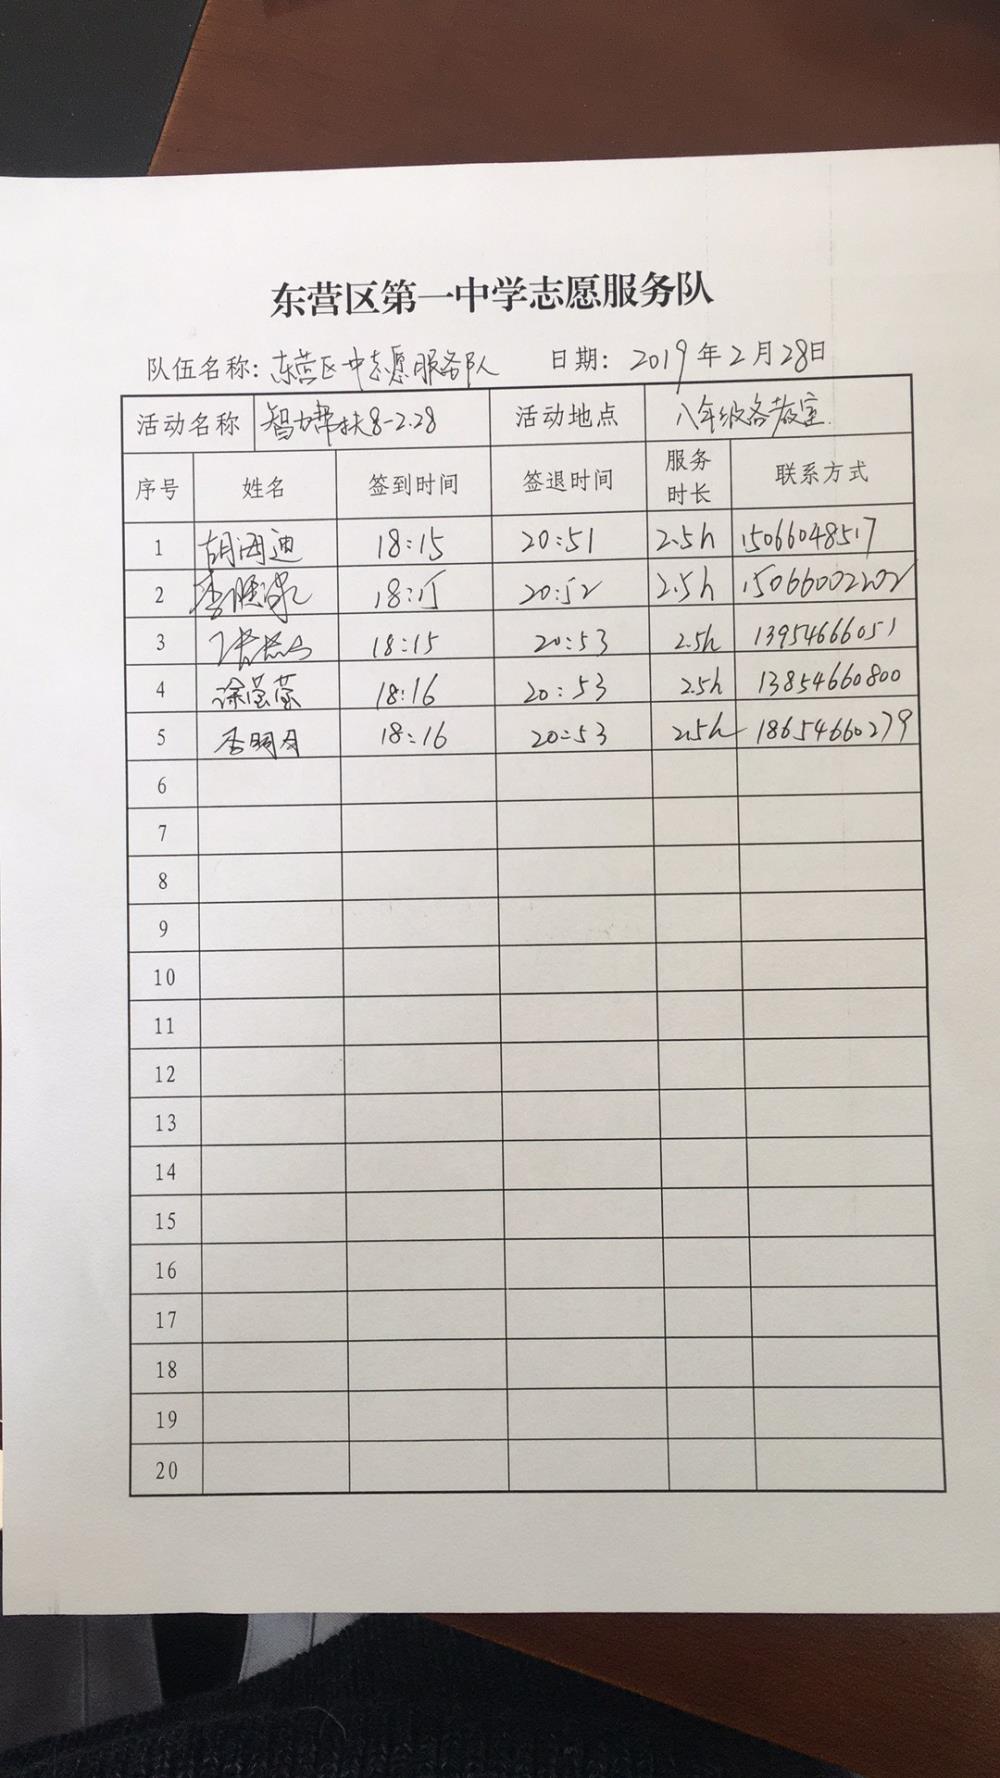 东营区第一中学志愿服务队
队伍名称：东营区一中志愿服务队 日期：2019年2月28日
活动名称 智力帮扶8-2.28 活动地点 八年级各教室
序号 姓名 签到时间 签退时间 服务时长 联系方式
1 胡海迪 18:15 20:51 2.5h 15066048517
2 18:15 20:52 2.5h 15066002202
3 18:15 20:53 2.5h 13954666051
4 徐莹莹 18:16 20:53 2.5h 13854660800
5 李明月 18:16 20:53 2.5h 18654660279
6
7
8
9
10
11
12
13
14
15
16
17
18
19
20